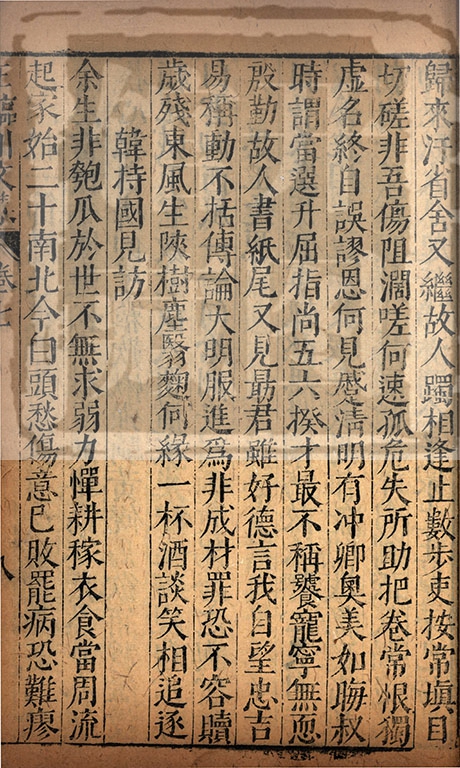 歸來汙省舍又繼故人躅相逢止數步吏按常塡目
切磋非吾傷阻濶嗟何速孤危失所助把卷常恨獨
虛名終自誤謬恩何見蹙淸明有冲卿奥美如晦叔
時謂當選升屈指尚五六揆才最不稱饕寵寧無恧
殷勤故人書紙尾又見朂君雖好德言我自望忠告
易稱動不括傳論大明服進爲非成材罪恐不容贖
歲殘東風生陜樹塵翳麴何緣一杯酒談笑相追逐
韓持國見訪
余生非匏瓜於世不無求弱力憚耕稼衣食當周流
起家始二十南北今白頭愁傷意已敗罷病恐難瘳